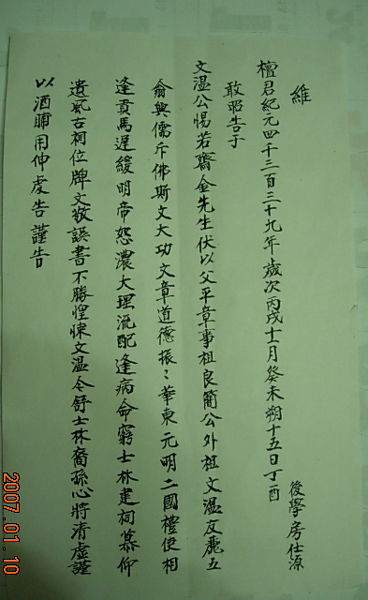 維
檀君紀元四千三百三十九年歲次丙戌十一月癸未朔十五日丁酉 後學房仕源
敢昭告于
文溫公惕若齋金先生伏以父平章事祖良簡公外祖文溫友麗五
侖興儒斥佛斯文大功文章道德振〻華東元明二國禮使相
逢貢馬遲緩明帝怒濃大理流配逢病命窮士林建祠慕仰
遺風古祠位牌文敬誤書不勝惶悚文溫令舒士林裔孫心將清虛謹
以酒脯用伸虔告謹告
2007.01.10